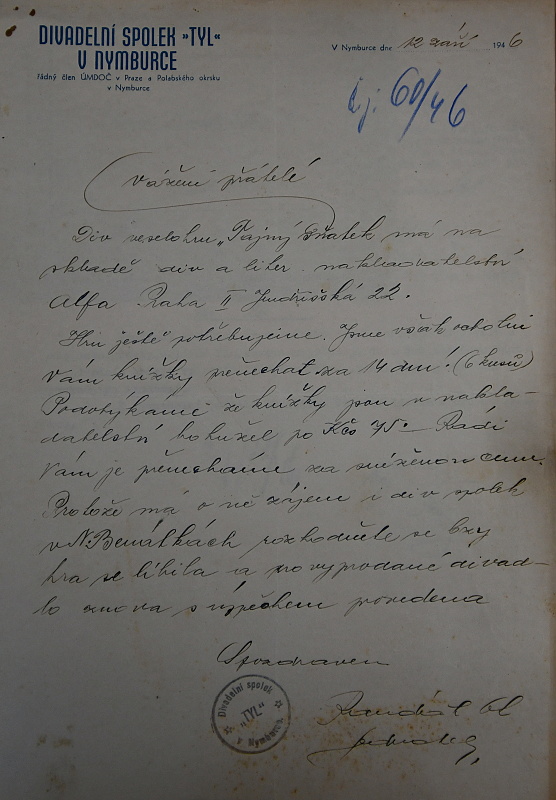 DIVADELNÍ SPOLEK »TYL«
V NYMBURCE
řádný člen ÚMDOČ v Praze a Polabského okrsku
v Nymburce
V Nymburce dne 12 září 1946
č. j. 60/46
Vážení přátelé
Div veselohru „Tajný sňatek má na
skladě div a liter. nakladatelství
Alfa Praha II Jindřišská 22.
Hru ještě potřebujeme. Jsme však ochotni
Vám knížky přenechat za 14 dní. (6 kusů)
Podotýkáme že knížky jsou u nakla-
datelství bohužel po Kčs 75.- Rádi
Vám je přenecháme za sníženou cenu.
Protože má o ně zájem i div spolek
v N. Benátkách rozhodněte se brzy
hra se líbila a pro vyprodané divad-
lo znova s úspěchem provedena
S pozdravem
Divadelní spolek
"TYL"
v Nymburce
jednatel